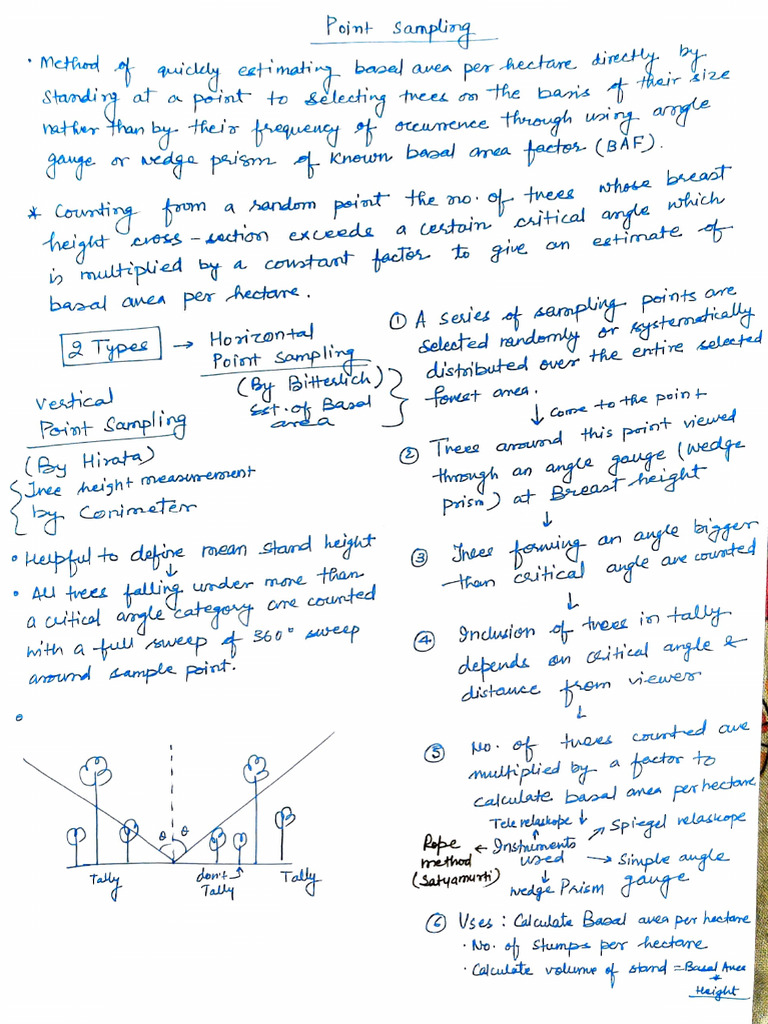 Point Sampling
• Method of quickly estimating basal area per hectare directly by
standing at a point to selecting trees on the basis of their size
rather than by their frequency of occurrence through using angle
gauge or wedge prism of known basal area factor (BAF).
* Counting from a random point the no. of trees whose breast
height cross-section exceeds a certain critical angle which
is multiplied by a constant factor to give an estimate of
basal area per hectare.
2 Types → Horizontal
Point Sampling
(By Bitterlich)
Est. of Basal
area
Vertical
Point Sampling
(By Hirata)
Tree height measurement
by Conimeter
• Helpful to define mean stand height
• All trees falling under more than
a critical angle category are counted
with a full sweep of 360° sweep
around sample point.
θ θ
Tally
don't
Tally
Tally
① A series of sampling points are
selected randomly or systematically
distributed over the entire selected
forest area.
↓ come to the point
② Trees around this point viewed
through an angle gauge (wedge
prism) at Breast height
↓
③ Trees forming an angle bigger
than critical angle are counted
↓
④ Inclusion of trees in tally
depends on critical angle &
distance from viewer
↓
⑤ No. of trees counted are
multiplied by a factor to
calculate basal area per hectare
Tele relaskope ↓
Rope ← Instruments ↗ Spiegel relaskope
method used → Simple angle
(Satyamurti) gauge
wedge Prism
⑥ Uses : Calculate Basal area per hectare
• No. of stumps per hectare
• Calculate volume of stand = Basal Area
*
Height